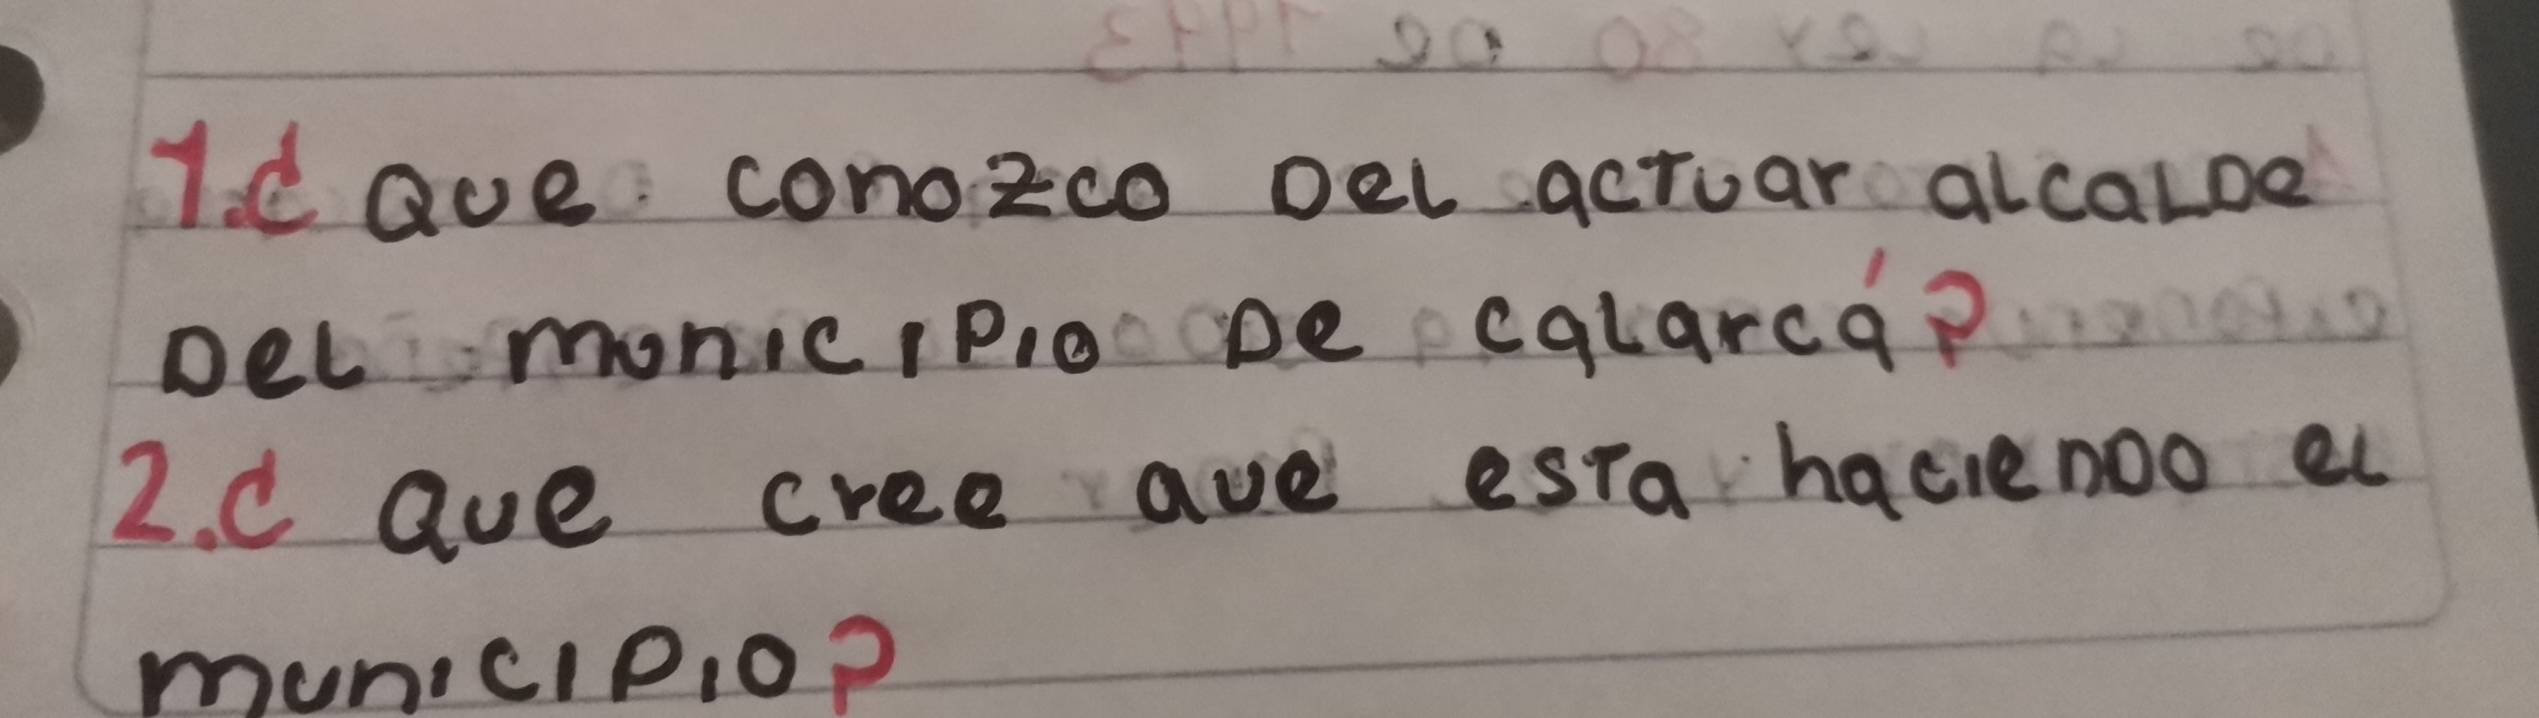 1.¿ Que conozco Del actuar alcalde
Del monicipio De calarcá?
2.¿ Que cree que esta haciendo el
municipio?